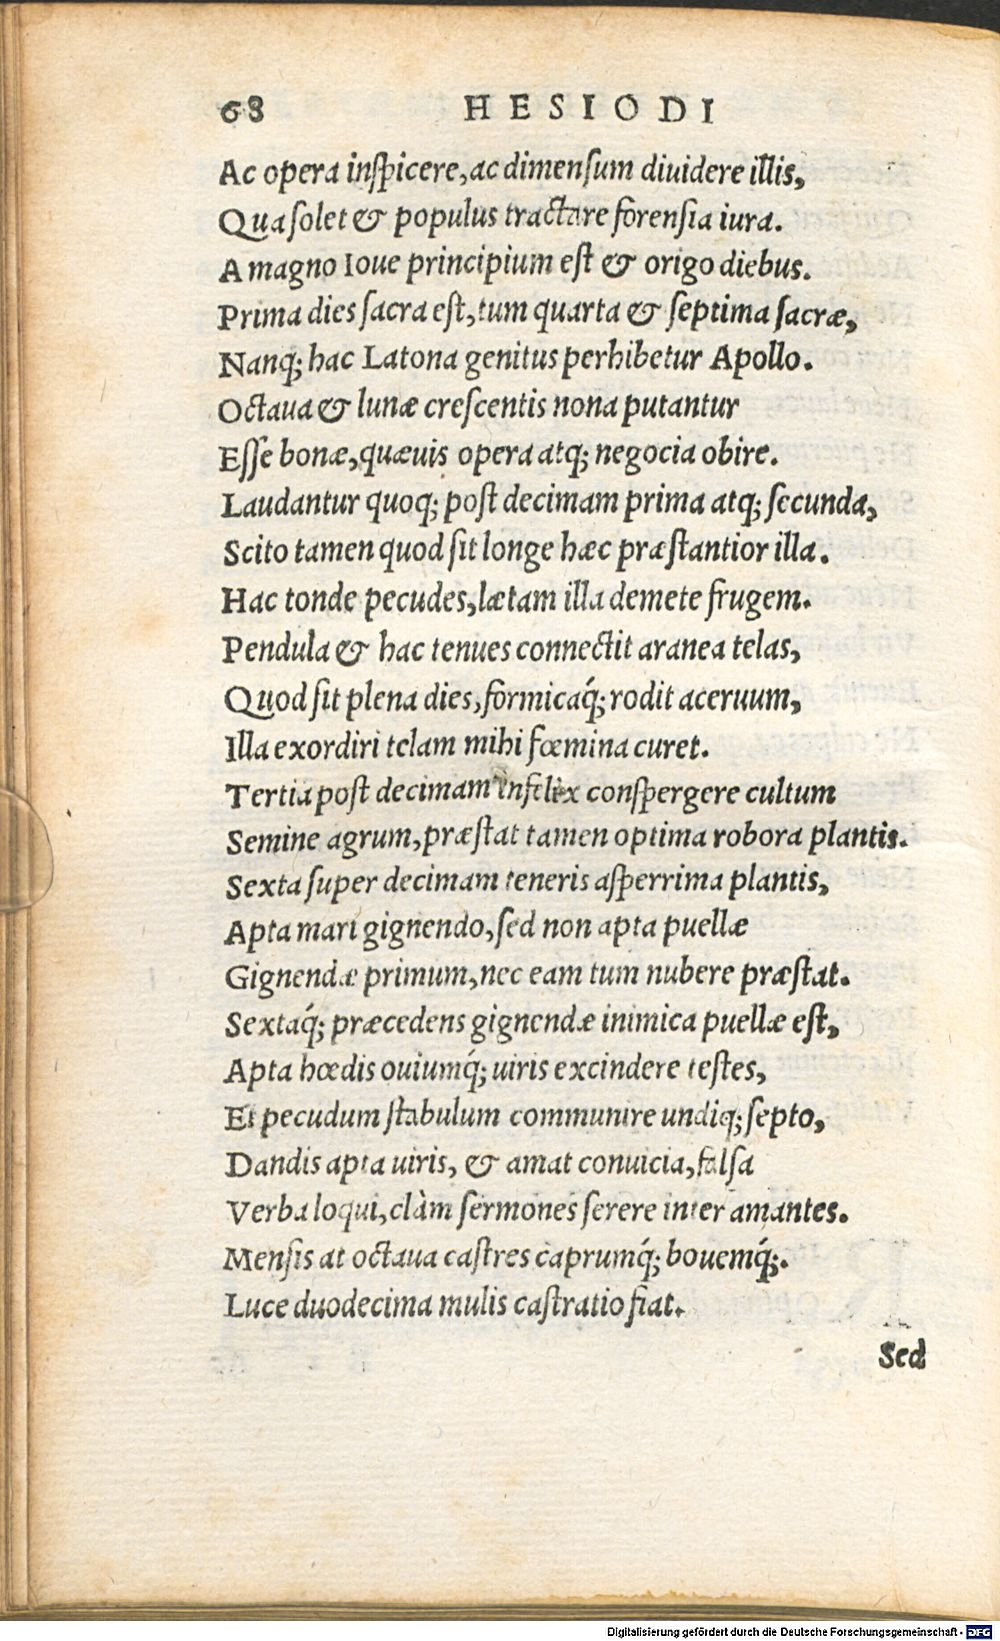 68 HESIODI
Ac opera inſpicere, ac dimenſum diuidere illis,
Qua ſolet & populus tractare forenſia iura.
A magno Ioue principium eſt & origo diebus.
Prima dies ſacra eſt, tum quarta & ſeptima ſacræ,
Nanq; hac Latona genitus perhibetur Apollo.
Octaua & lunæ creſcentis nona putantur
Eſſe bonæ, quæuis opera atq; negocia obire.
Laudantur quoq; poſt decimam prima atq; ſecunda,
Scito tamen quod ſit longe hæc præſtantior illa.
Hac tonde pecudes, lætam illa demete frugem.
Pendula & hac tenues connectit aranea telas,
Quod ſit plena dies, formicaq́; rodit aceruum,
Illa exordiri telam mihi fœmina curet.
Tertia poſt decimam infelix conſpergere cultum
Semine agrum, præſtat tamen optima robora plantis.
Sexta ſuper decimam teneris aſperrima plantis,
Apta mari gignendo, ſed non apta puellæ
Gignendæ primum, nec eam tum nubere præſtat.
Sextaq́; præcedens gignendæ inimica puellæ eſt,
Apta hœdis ouiumq́; uiris excindere teſtes,
Et pecudum ſtabulum communire undiq; ſepto,
Dandis apta uiris, & amat conuicia, falſa
Verba loqui, clàm ſermones ſerere inter amantes.
Menſis at octaua caſtres caprumq́; bouemq́;.
Luce duodecima mulis caſtratio fiat.
Sed
Digitalisierung gefördert durch die Deutsche Forschungsgemeinschaft - DFG